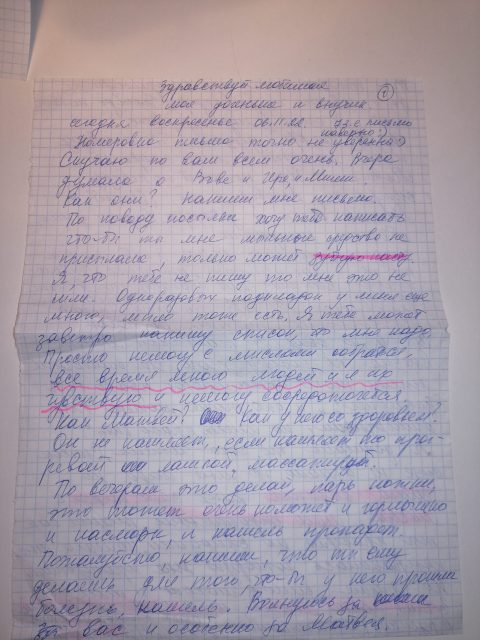 Здравствуй любимая
моя доченька и внучик. ①
сегодня воскресенье 06.11.22. 73-е письмо
Номеровка письма точно не уверенна :) наверно :)
Скучаю по вам всем очень. Вчера
думала о Вове и Ире, и Мише.
Как они? Напиши мне письмо.
По поводу посылки хочу тебе написать
что-бы ты мне мыльные средство не
присылала, только может
Я, что тебе не пишу что мне это не
Одноразовых подкладок у меня ещё
много, мыло тоже есть, Я тебе может
завтра напишу список, что мне надо
Просто немогу с мыслями собраться,
все время много людей и я их
чувствую и немогу сосредоточется.
Как Матвей? Как у него со здоровьем?
Он не кашляет, если кашляет то про-
гревай лампой, массажируй.
По вечерам это делай, парь ножки,
это может очень поможет и горлышко
и насморк, и кашель пропадет.
Пожалуйста, напиши, что ты ему
делаешь для того, что-бы у него прошла
болезнь, кашель. Волнуюсь за
За вас и особенно за Матвея.